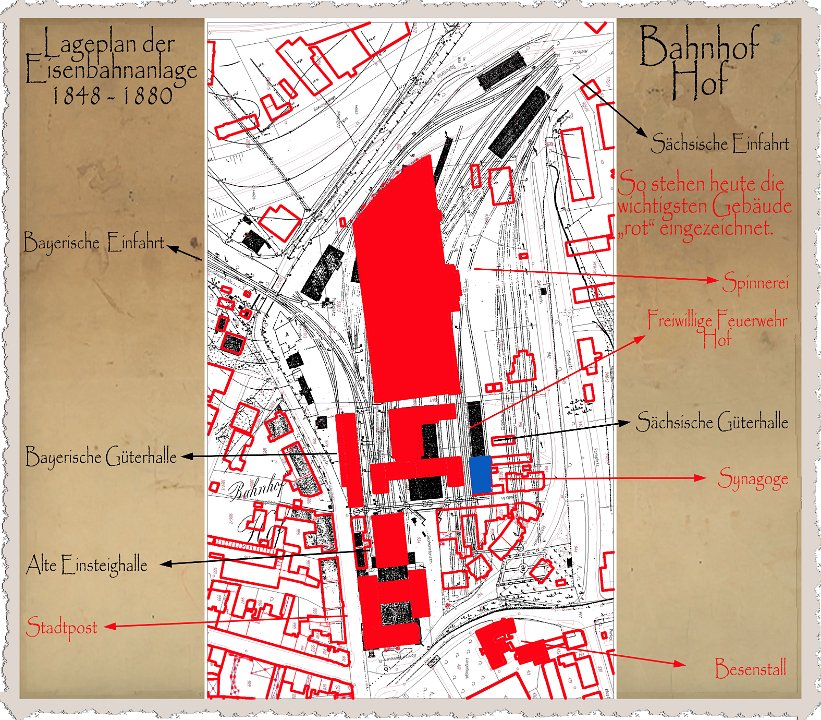 Lageplan der
Eisenbahnanlage
1848 - 1880
Bahnhof
Hof
Sächsische Einfahrt
So stehen heute die
wichtigsten Gebäude
„rot“ eingezeichnet.
Bayerische Einfahrt
Spinnerei
Freiwillige Feuerwehr
Hof
Sächsische Güterhalle
Bayerische Güterhalle
Synagoge
Bahnhof
Alte Einsteighalle
Stadtpost
Besenstall